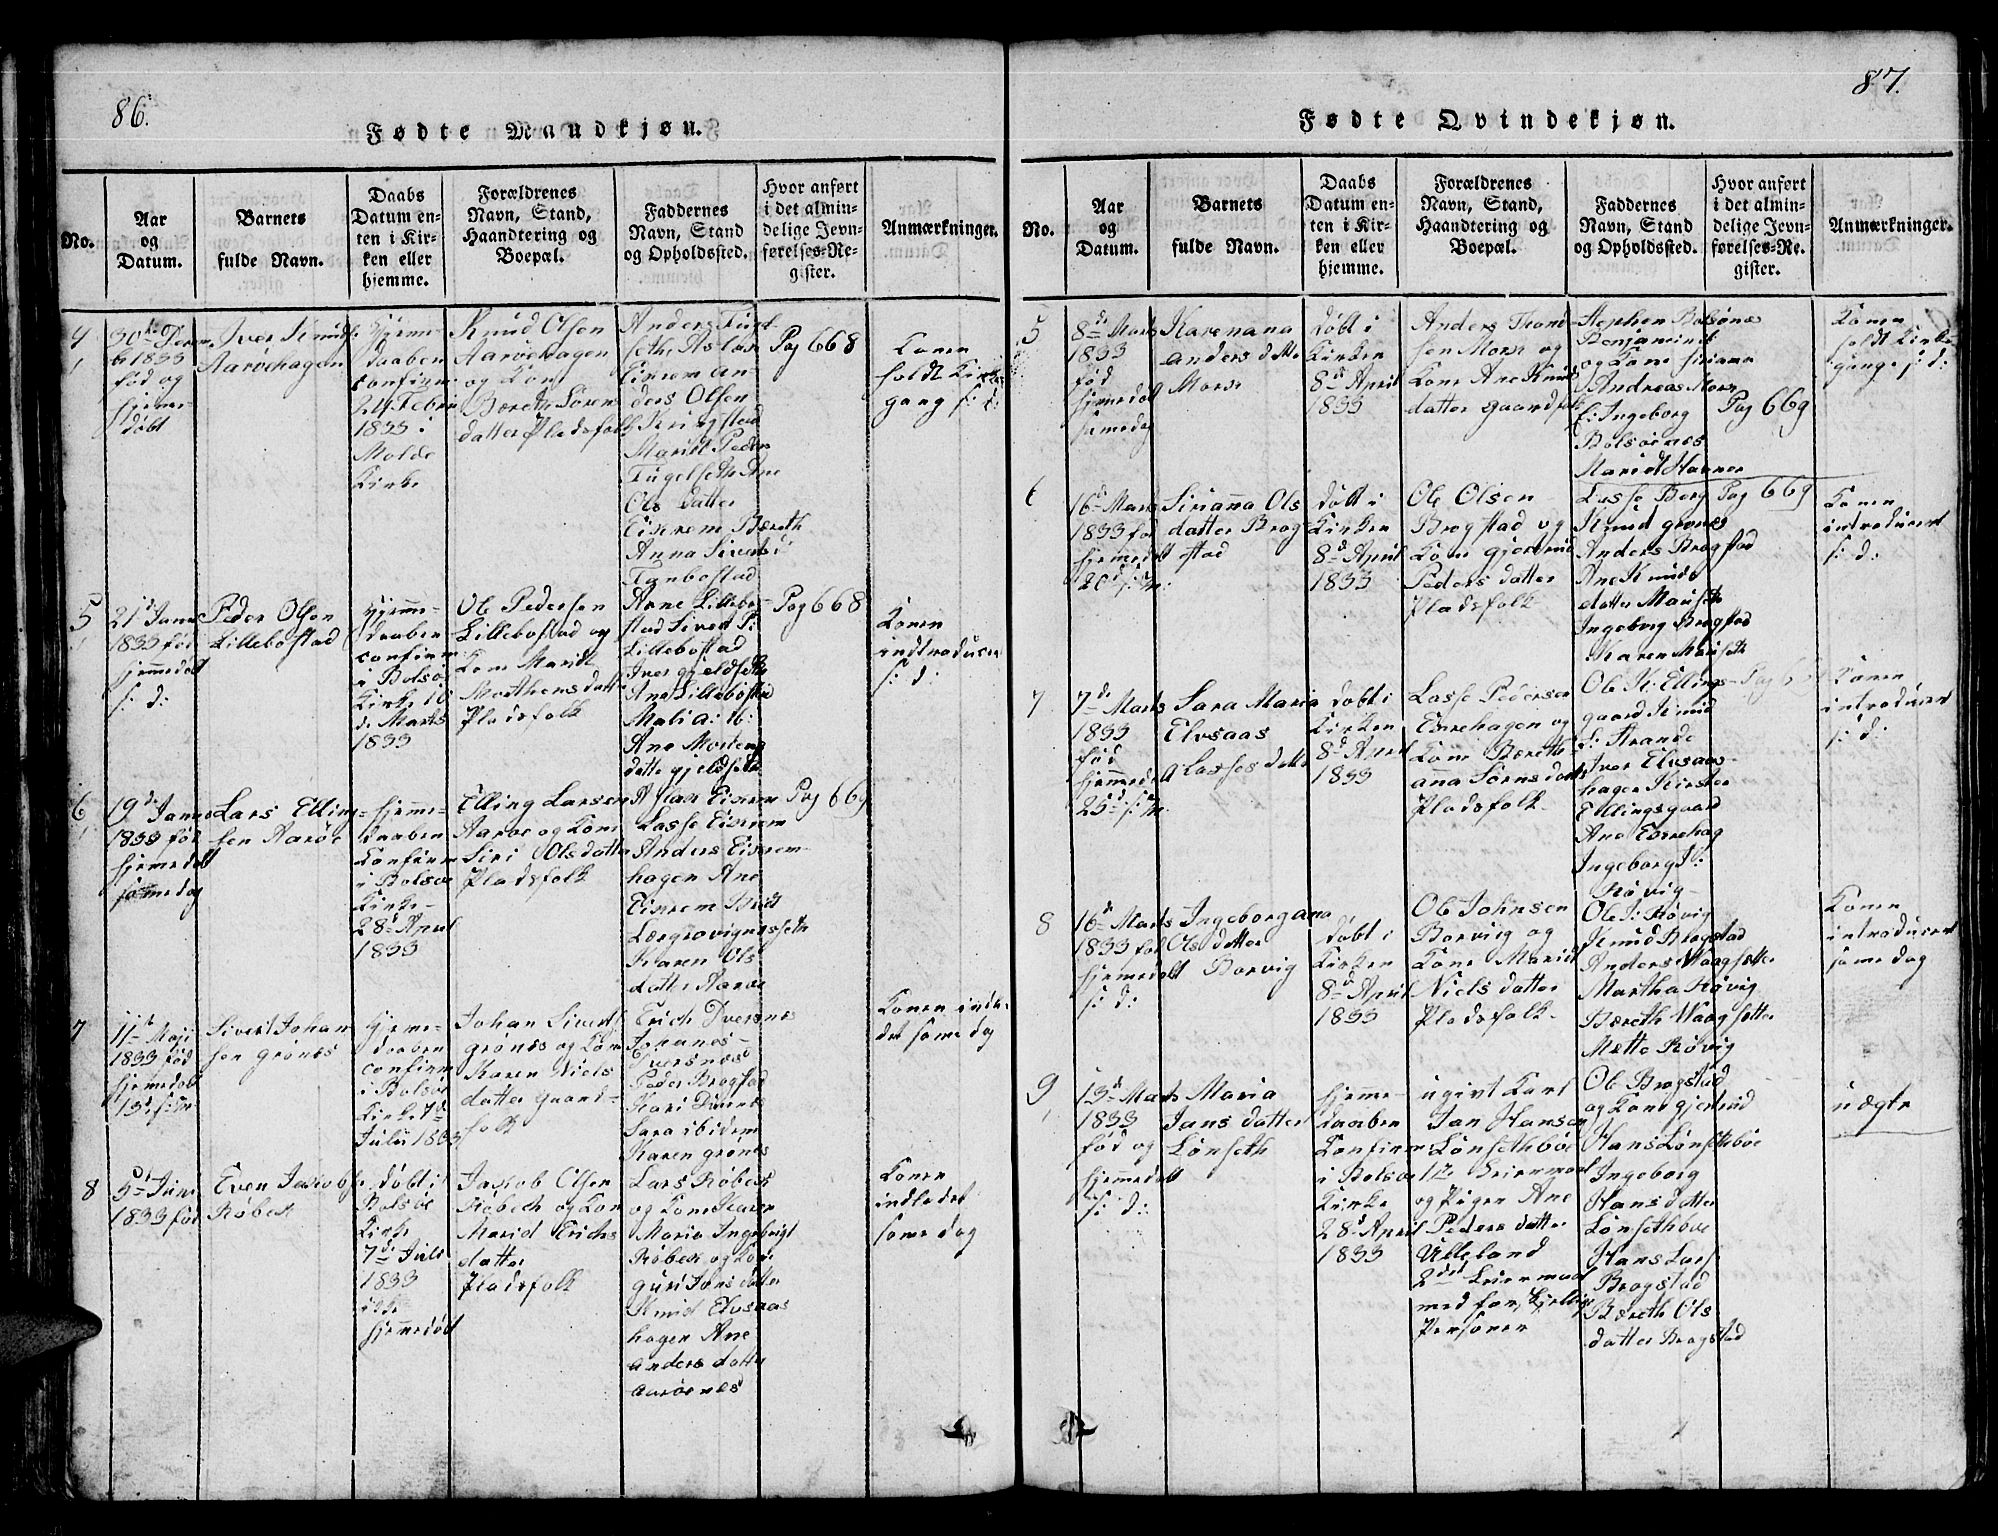 86.
Fødte Mandkjøn.
No.
Aar
og
Datum.
Barnets
fulde Navn.
Daabs
Datum en-
ten i Kir-
ken eller
hjemme.
Forældrenes
Navn, Stand,
Haandtering og
Boepæl.
Faddernes
Navn, Stand
og Opholdssted.
Hvor anført
i det almin-
delige Jevn-
førelses-Re-
gister.
Anmærkninger.
4
1833
fød og
hjemme-
døbt
Iver Knuds:
Aarøehagen
Hjeme-
daaben
confirm:
24 Febru
1833 i
Molde
Kirke
Knud Olsen
Aarøehagen
og Kone
Bereth Sørens
datter Pladsfolk
Anders Furt
sethe Aslax
Eisrem An-
ders Olsen
Kringstad
Marit Peders
Fugelseth Ane
Ols datter
Eisrem Bereth
Anna Siverts
Tanbostad
Pag 668
Konen
holdt Kirke
gang s: d:
5
21d Janu
1833 fød
hjemmedøbt
s: d:
Peder Olsen
Lillebostad
Hjemme-
daaben
confirm
i Bolsø
Kirke 10
d. Marts
1833
Ole Pedersen
Lillebostad og
Kone Marit
Morthens datter
Pladsfolk
Arne Lillebo-
stad Sivert P:
Lillebostad
Iver gjeldseth
Ane Lillebostad
Mali a: ib:
Ane Mortens
datter gjeldseth
Pag 668
Konen
indtroducer
s: d:
6
19d Janu
1833 fød
hjemmedøbt
samedag
Lars Elling-
sen Aarøe
hjemme-
daaben
Confirm
i Bolsøe
Kirke-
28d April
1833
Elling Larsen
Aarøe og Kone
Siri Olsdatter
Pladsfolk
Aslax Eisrem
Lasse Eisrem
Anders Eisrem-
hagen Ane
Eisrem Brit
Lergrovignesseth
Karen Ols
datter Aarøe
Pag 669
7
11te Maji
1833 fød
hjemedøbt
13d s: M
Sivert Johan
sen grønes
Hjeme-
daaben
confirm
i Bolsø
Kirke 7d
Julii 1833
Johan Siverts
grønes og Kone
Karen Niels
datter gaard-
folk
Erich Dversnes
Johanes-
Dversnes
Peder Brogstad
Kari Dversnes
Sara ibidem
Karen grønes
Konen indle
det samedag
8
5d Juni
1833 fød
Even Jacobs:
Røbech
døbt i
Bolsøe
Kirke
7de Julii
1833
ikke
hjemmedøbt
Jacob Olsen
Røbech og Kone
Marid Erichs
datter
Pladsfolk
Lars Røbech
og Kone Karen
Maria Ingebrigt
Røbech og Kone
guri Jons datter
Knud Elvsaas
hagen Ane
anders datter
aarøenes
Konen
indledet
samedag
87.
Fødte Qvindekjøn.
No.
Aar
og
Datum.
Barnets
fulde Navn.
Daabs
Datum en-
ten i Kir-
ken eller
hjemme.
Forældrenes
Navn, Stand,
Haandtering og
Boepæl.
Faddernes
Navn, Stand
og Opholdssted.
Hvor anført
i det almin-
delige Jevn-
førelses-Re-
gister.
Anmærkninger.
5
8de Marts
1833
fød
hjemedøbt
samedag
Karenana
anders datter
Morse
døbt i
Kirken
8d April
1833
Anders Thord-
sen Morse og
Kone Ane Knuds
datter gaardfolk
Stephen Bolsønes
Benjamin
og Kone Siriana
Andreas Morse
E: Ingeborg
Bolsøenes
Marit Havnes
Pag 669
Konen
holdt Kirke
gang s: d:
6
16d Marts
1833 fød
hjemedøbt
20d s: M:
Sirianna Ols
datter Brog-
stad
døbt i
Kirken
8d April
1833
Ole Olsen
Brogstad og
Kone gjertrud
Peders datter
Pladsfolk
Lasse Berg
Knud grønes
Anders Brogstad
Ane Knuds
datter Mauseth
Ingeborg Brogstad
Maren Mauseth
Pag 669
Konen
introducert
s: d:
7
7de Marts
1833
fød
hjemmedøbt
25d s: M
Sara Maria
Elvsaas
a Lasses datter
døbt i
Kirken
8d April
1833
Lasse Pedersen
Esrehagen og
Kone Berethe
anna Sørens datter
Pladsfolk
Ole K: Ellings-
gaard Knud
L: Strande
Iver Elvsaas-
hagen Kirsten
Ellingsgaard
Ane Esrehag
Ingeborg
Røvig-
Konen
introducert
s: d:
8
16d Marts
1833 fød
hjemedøbt
s: d:
Ingeborgana
Ols datter
Borvig
døbt i
Kirken
8d April
1833
Ole Johnsen
Borviig og
Kone Marit
Niels datter
Pladsfolk-
Ole J: Røvig
Knud Brogstad
Anders Waagsetter
Martha Røvig
Bereth Waagsetter
Mette Røvig
Konen
introducert
samedag
9
13d Marts
1833
fød og
hjemmedøbt
s: d:
Maria
Jans datter
Lønseth
hjemme-
daaben
Confirm
i Bolsøe
Kirke
28d April
1833
ugivt Karl
Jan Hansen
Lønsethbøe
1te Leiermaal
og Pigen Ane
Peders datter
Ulleland
2det Leiermaal
med forskjellige
Personer
Ole Brogstad
og Kone gjertrud
Hans Lønsethbøe
Ingeborg
Hans datter
Lønsethbøe
Hans Lars:
Brogstad
Bereth Ols
datter Brogstad
uægte